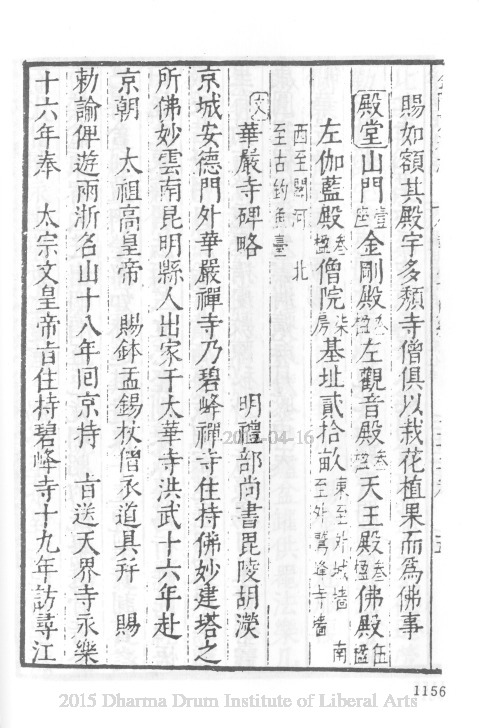 賜如額其殿宇多頹寺僧俱以栽花植果而爲佛事
殿堂山門壹座金剛殿叁楹左觀音殿叁楹天王殿叁楹佛殿伍楹
左伽藍殿叁楹僧院柒房基址貳拾畝東至外城墻南至外鷲峰寺墻
西至關河北至古釣魚臺
文華嚴寺碑略 明禮部尚書毘陵胡濙
京城安德門外華嚴禪寺乃碧峰禪寺住持佛妙建塔之
所佛妙雲南昆明縣人出家于太華寺洪武十六年赴
京朝 太祖高皇帝 賜鉢盂錫杖僧衣道具幷 賜
勅諭俾遊兩浙名山十八年回京持 旨送天界寺永樂
十六年奉 太宗文皇帝旨住持碧峰寺十九年訪尋江
2015-04-16
1156
2015 Dharma Drum Institute of Liberal Arts